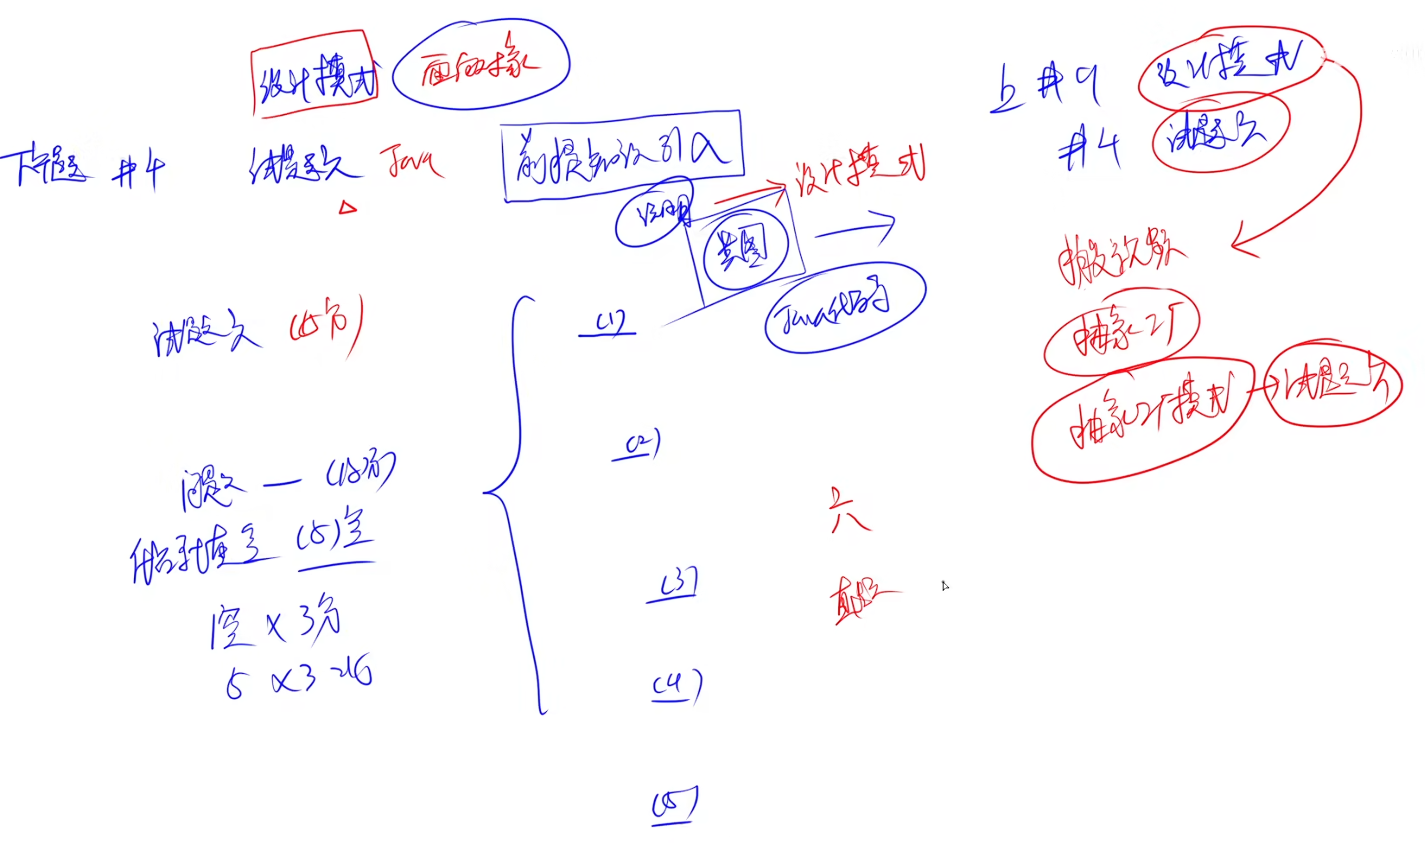 设计模式 面向对象
上午 9 设计模式
下午题 #4 试题六 Java
前提知识引入
#4 试题六
说明
设计模式
类图
Java代码
考察次数
试题六 (15分)
(1)
抽象工厂
抽象工厂模式 → 试题六
(2)
问题 — (15分)
(5)空
六
(3)
真题
1空 × 3分
5 × 3 = 15
(4)
(5)